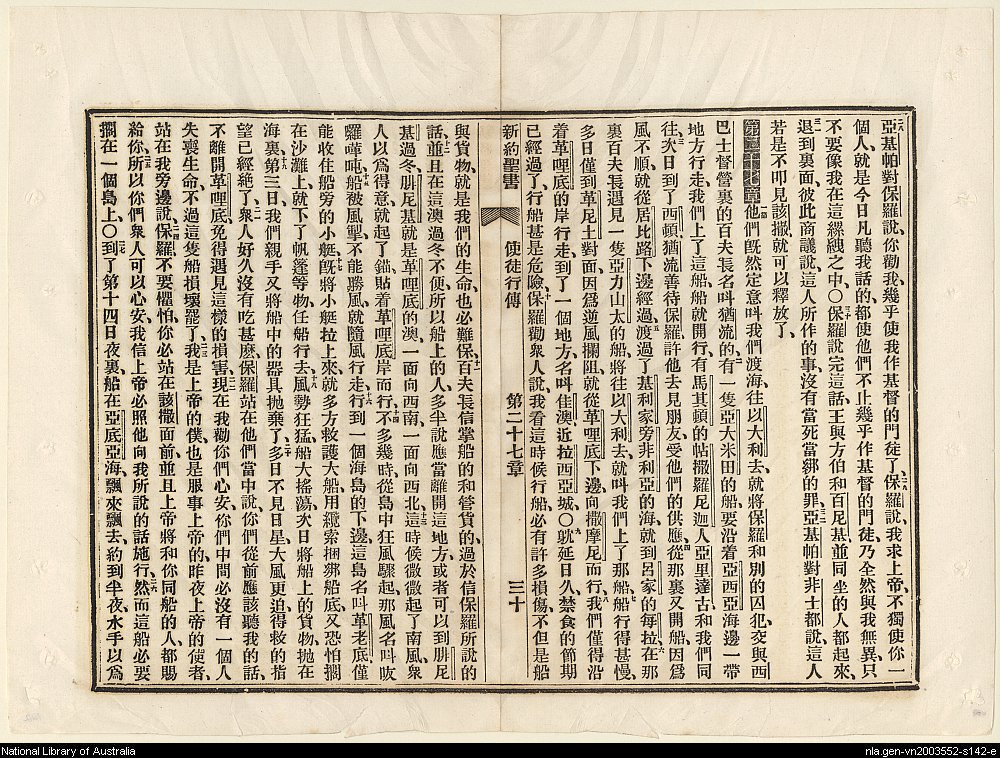 二八亞基帕對保羅說、你勸我幾乎使我作基督的門徒了、二九保羅說、我求上帝、不獨使你一
個人、就是今日凡聽我話的、都使他們不止幾乎作基督的門徒、乃全然與我無異、只
不要像我在這縲絏之中、〇三十保羅說完這話、王與方伯和百尼基、並同坐的人都起來、
三一退到裏面、彼此商議說、這人所作的事、沒有當死當綁的罪、三二亞基帕對非士都說、這人
若是不叫見該撒、就可以釋放了、
第二十七章一節他們旣然定意叫我們渡海、往以大利去、就將保羅和別的囚犯、交與西
巴士督營裏的百夫長名叫猶流的、二有一隻亞大米田的船、要沿着亞西亞海邊一帶
地方行走、我們上了這船、船就開行、有馬其頓的帖撒羅尼迦人亞里達古、和我們同
往、三次日到了西頓、猶流善待保羅、許他去見朋友、受他們的供應、四從那裏又開船、因爲
風不順、就從居比路下邊經過、五渡過了基利家旁非利亞的海、就到呂家的每拉、六在那
裏百夫長遇見一隻亞力山太的船、將往以大利去、就叫我們上了那船、七船行得甚慢、
多日僅到革尼土對面、因爲逆風攔阻、就從革哩底下邊、向撒摩尼而行、八我們僅得沿
着革哩底的岸行走、到了一個地方、名叫佳澳、近拉西亞城、〇九躭延日久、禁食的節期
已經過了、行船甚是危險、十保羅勸衆人說、我看這時候行船、必有許多損傷、不但是船
新約聖書 使徒行傳 第二十七章 三十
與貨物、就是我們的生命、也必難保、十一百夫長信掌船的和管貨的、過於信保羅所說的
話、十二並且在這澳過冬不便、所以船上的人、多半說、應當離開這地方、或者可以到腓尼
基過冬、腓尼基就是革哩底的澳、一面向西南、一面向西北、十三這時候微微起了南風、衆
人以爲得意、就起了錨、貼着革哩底岸而行、十四不多幾時、從島中狂風驟起、那風名叫吰
囉𡂖吨、十五船被風掣、不能勝風、就隨風行走、十六行到一個海島的下邊、這島名叫革老底、僅
能收住船旁的小艇、十七旣將小艇拉上來、就多方救護大船、用纜索捆綁船底、又恐怕擱
在沙灘上、就下了帆篷等物、任船行去、十八風勢狂猛、船大搖蕩、次日將船上的貨物拋在
海裏、十九第三日我們親手又將船中的器具拋棄了、二十多日不見日星、大風更迫、得救的指
望已經絶了、二一衆人好久沒有吃甚麽、保羅站在他們當中說、你們從前應該聽我的話、
不離開革哩底、免得遇見這樣的損害、二二現在我勸你們心安、你們中間必沒有一個人
失喪生命、不過這隻船損壞罷了、二三我是上帝的僕、也是服事上帝的、昨夜上帝的使者、
站在我旁邊說、二四保羅不要懼怕、你必站在該撒面前、並且上帝將和你同船的人、都賜
給你、二五所以你們衆人可以心安、我信上帝必照他向我所說的話施行、二六然而這船必要
擱在一個島上、〇二七到了第十四日夜裏、船在亞底亞海、飄來飄去、約到半夜、水手以爲
National Library of Australia
nla.gen-vn2003552-s142-e